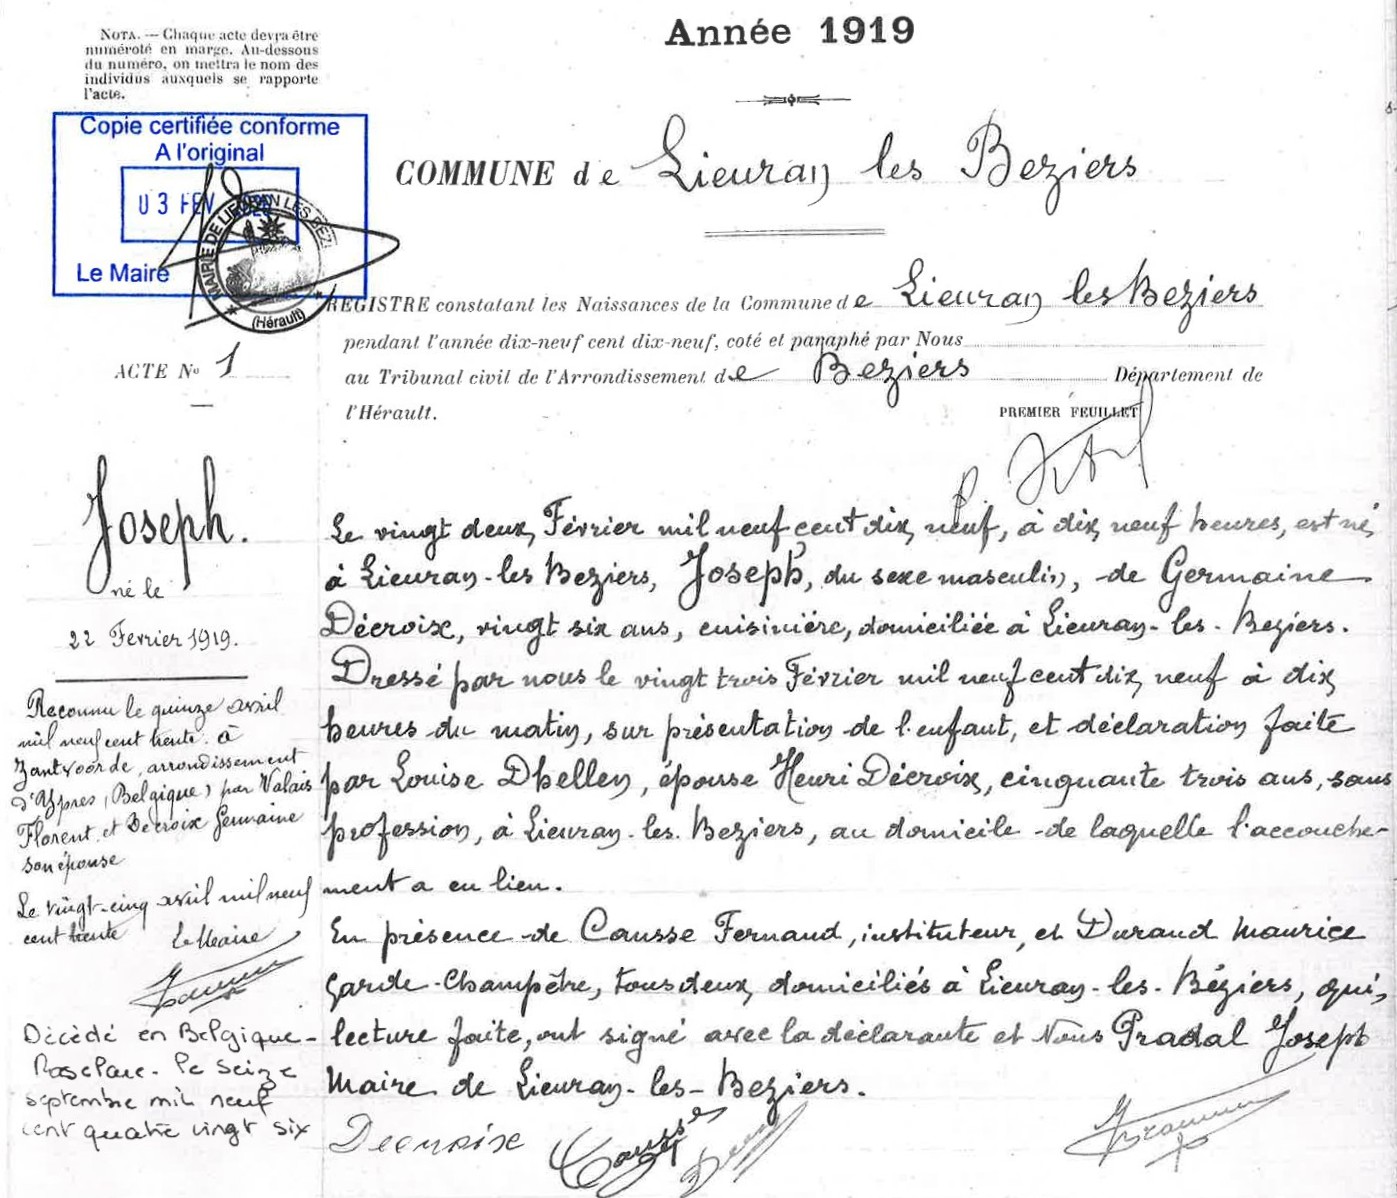 Année 1919
NOTA. — Chaque acte devra être
numéroté en marge. Au-dessous
du numéro, on mettra le nom des
individus auxquels se rapporte
l'acte.
Copie certifiée conforme
A l'original
03 FEV
Le Maire
MAIRIE DE LIEURAN LES BEZI
(Hérault)
COMMUNE de Lieuran les Beziers
REGISTRE constatant les Naissances de la Commune de Lieuran les Beziers
pendant l'année dix-neuf cent dix-neuf, coté et paraphé par Nous
au Tribunal civil de l'Arrondissement de Beziers Département de
l'Hérault.
PREMIER FEUILLET
ACTE No 1
Joseph.
né le
22 Fevrier 1919.
Reconnu le quinze avril
mil neuf cent trente à
Zantvoorde, arrondissement
d'Ypres (Belgique) par Valais
Florent et Decroix Germaine
son épouse
Le vingt-cinq avril mil neuf
cent trente le Maire
Décèdé en Belgique-
le seize
septembre mil neuf
cent quatre vingt six
Le vingt deux Février mil neuf cent dix neuf, à dix neuf heures, est né,
à Lieuran-les Beziers, Joseph, du sexe masculin, de Germaine
Décroix, vingt six ans, cuisinière, domiciliée à Lieuran-les-Beziers.
Dressé par nous le vingt trois Février mil neuf cent dix neuf à dix
heures du matin, sur présentation de l'enfant, et déclaration faite
par Louise Dhellen, épouse Henri Décroix, cinquante trois ans, sans
profession, à Lieuran-les-Beziers, au domicile de laquelle l'accouche-
ment a eu lieu.
En présence de Causse Fernand, instituteur, et Durand Maurice
garde-Champêtre, tous deux domiciliés à Lieuran-les-Béziers, qui,
lecture faite, ont signé avec la déclarante et Nous Pradal Joseph
Maire de Lieuran-les-Beziers.
Decroix Causse